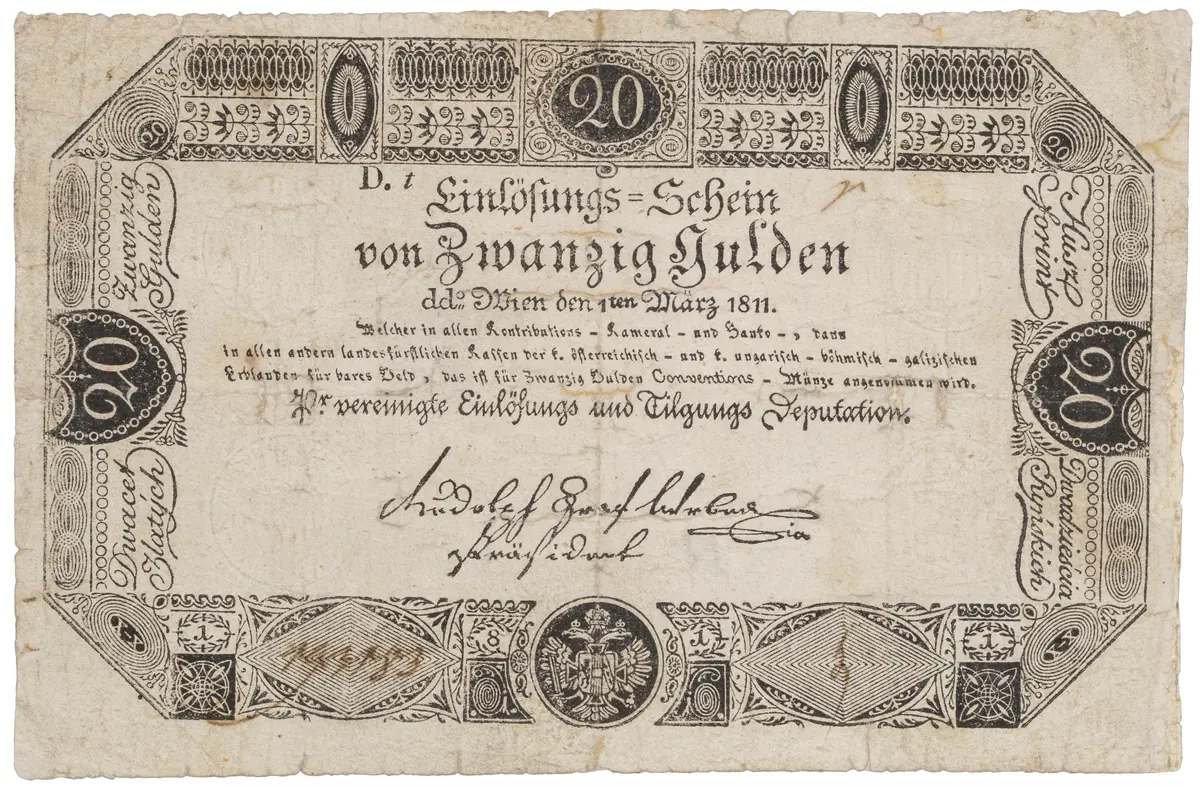 20
20
20
D. t
Einlösungs=Schein
von Zwanzig Gulden
ddo. Wien den 1ten März 1811.
Welcher in allen Kontributions - Kameral - und Banko -, dann
in allen andern landesfürstlichen Kassen der k. österreichisch - und k. ungarisch - böhmisch - galizischen
Erblanden für bares Geld, das ist für Zwanzig Gulden Conventions - Münze angenommen wird.
Pr vereinigte Einlösungs und Tilgungs Deputation.
Rudolph Graf Wrbna
Präsident
Zwanzig
Gulden
Husz
forint
20
20
Dwacet
Zlatých
Dwadzieścia
Ryńskich
1
8
1
1